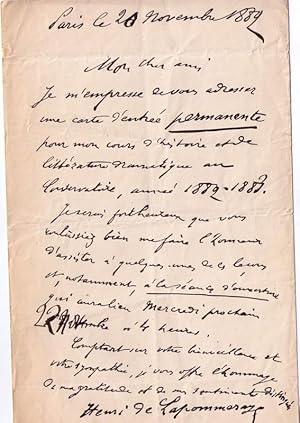 Paris le 20 Novembre 1882
Mon cher ami
Je m'empresse de vous adresser
une carte d'entrée permanente
pour mon cours d'histoire et de
littérature dramatique au
Conservatoire, année 1882-1883.
Je serai fort heureux que vous
vouliez bien me faire l'honneur
d'assister à quelques unes de ces leçons
et, notamment, à la séance d'ouverture
qui aura lieu Mercredi prochain
22 Novembre à 4 heures.
Comptant sur votre bienveillance et
votre sympathie, je vous offre l'hommage
de ma gratitude et de mes sentiments distingués
Henri de Lapommeraye